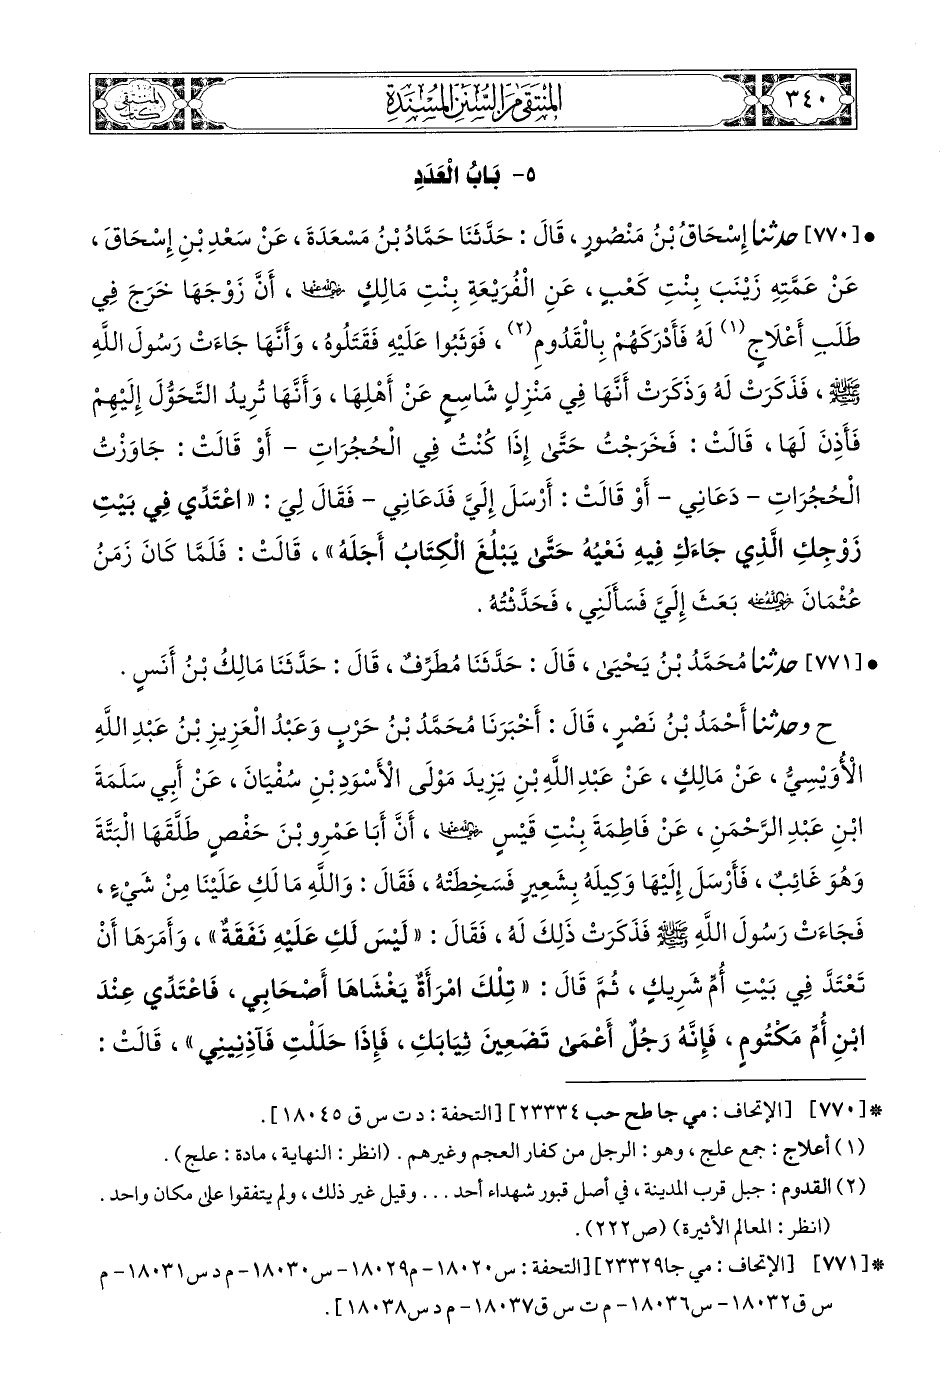 ٣٤٠
المنتقى من السنن المسندة
كتاب المنتقى
٥- بَابُ الْعَدَدِ
• [٧٧٠] حدثنا إِسْحَاقُ بْنُ مَنْصُورٍ، قَالَ: حَدَّثَنَا حَمَّادُ بْنُ مَسْعَدَةَ، عَنْ سَعْدِ بْنِ إِسْحَاقَ،
عَنْ عَمَّتِهِ زَيْنَبَ بِنْتِ كَعْبٍ، عَنِ الْفُرَيْعَةِ بِنْتِ مَالِكٍ رضي الله عنها، أَنَّ زَوْجَهَا خَرَجَ فِي
طَلَبِ أَعْلَاجٍ (١) لَهُ فَأَدْرَكَهُمْ بِالْقَدُومِ (٢)، فَوَثَبُوا عَلَيْهِ فَقَتَلُوهُ، وَأَنَّهَا جَاءَتْ رَسُولَ اللَّهِ
ﷺ، فَذَكَرَتْ لَهُ وَذَكَرَتْ أَنَّهَا فِي مَنْزِلٍ شَاسِعٍ عَنْ أَهْلِهَا، وَأَنَّهَا تُرِيدُ التَّحَوُّلَ إِلَيْهِمْ
فَأَذِنَ لَهَا، قَالَتْ: فَخَرَجْتُ حَتَّى إِذَا كُنْتُ فِي الْحُجُرَاتِ - أَوْ قَالَتْ: جَاوَزْتُ
الْحُجُرَاتِ - دَعَانِي - أَوْ قَالَتْ: أَرْسَلَ إِلَيَّ فَدَعَانِي - فَقَالَ لِيَ: «اعْتَدِّي فِي بَيْتِ
زَوْجِكِ الَّذِي جَاءَكِ فِيهِ نَعْيُهُ حَتَّى يَبْلُغَ الْكِتَابُ أَجَلَهُ»، قَالَتْ: فَلَمَّا كَانَ زَمَنُ
عُثْمَانَ رضي الله عنه بَعَثَ إِلَيَّ فَسَأَلَنِي، فَحَدَّثْتُهُ.
• [٧٧١] حدثنا مُحَمَّدُ بْنُ يَحْيَى، قَالَ: حَدَّثَنَا مُطَرِّفٌ، قَالَ: حَدَّثَنَا مَالِكُ بْنُ أَنَسٍ.
ح وحدثنا أَحْمَدُ بْنُ نَصْرٍ، قَالَ: أَخْبَرَنَا مُحَمَّدُ بْنُ حَرْبٍ وَعَبْدُ الْعَزِيزِ بْنُ عَبْدِ اللَّهِ
الْأُوَيْسِيُّ، عَنْ مَالِكٍ، عَنْ عَبْدِ اللَّهِ بْنِ يَزِيدَ مَوْلَى الْأَسْوَدِ بْنِ سُفْيَانَ، عَنْ أَبِي سَلَمَةَ
ابْنِ عَبْدِ الرَّحْمَنِ، عَنْ فَاطِمَةَ بِنْتِ قَيْسٍ رضي الله عنها، أَنَّ أَبَا عَمْرِو بْنَ حَفْصٍ طَلَّقَهَا الْبَتَّةَ
وَهُوَ غَائِبٌ، فَأَرْسَلَ إِلَيْهَا وَكِيلَهُ بِشَعِيرٍ فَسَخِطَتْهُ، فَقَالَ: وَاللَّهِ مَا لَكِ عَلَيْنَا مِنْ شَيْءٍ،
فَجَاءَتْ رَسُولَ اللَّهِ ﷺ فَذَكَرَتْ ذَلِكَ لَهُ، فَقَالَ: «لَيْسَ لَكِ عَلَيْهِ نَفَقَةٌ»، وَأَمَرَهَا أَنْ
تَعْتَدَّ فِي بَيْتِ أُمِّ شَرِيكٍ، ثُمَّ قَالَ: «تِلْكَ امْرَأَةٌ يَغْشَاهَا أَصْحَابِي، فَاعْتَدِّي عِنْدَ
ابْنِ أُمِّ مَكْتُومٍ، فَإِنَّهُ رَجُلٌ أَعْمَى تَضَعِينَ ثِيَابَكِ، فَإِذَا حَلَلْتِ فَآذِنِينِي»، قَالَتْ:
* [٧٧٠] [الإتحاف: مي جا طح حب ٢٣٣٣٤] [التحفة: د ت س ق ١٨٠٤٥].
(١) أعلاج: جمع علج، وهو: الرجل من كفار العجم وغيرهم. (انظر: النهاية، مادة: علج).
(٢) القدوم: جبل قرب المدينة، في أصل قبور شهداء أحد ... وقيل غير ذلك، ولم يتفقوا على مكان واحد.
(انظر: المعالم الأثيرة) (ص٢٢٢).
* [٧٧١] [الإتحاف: مي جا٢٣٣٢٩] [التحفة: س١٨٠٢٠- م١٨٠٢٩- س١٨٠٣٠- م د س١٨٠٣١- م
س ق١٨٠٣٢- س١٨٠٣٦- م ت س ق١٨٠٣٧- م د س١٨٠٣٨].